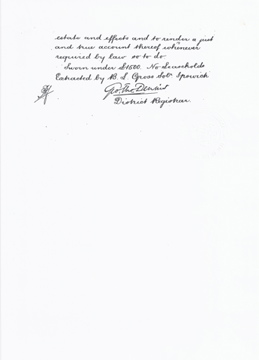 estate and effects and to render a just
and true account thereof whenever
required by law so to do.
Sworn under £1500. No Leaseholds
Extracted by B. S. Gross Solr. Ipswich
District Registrar